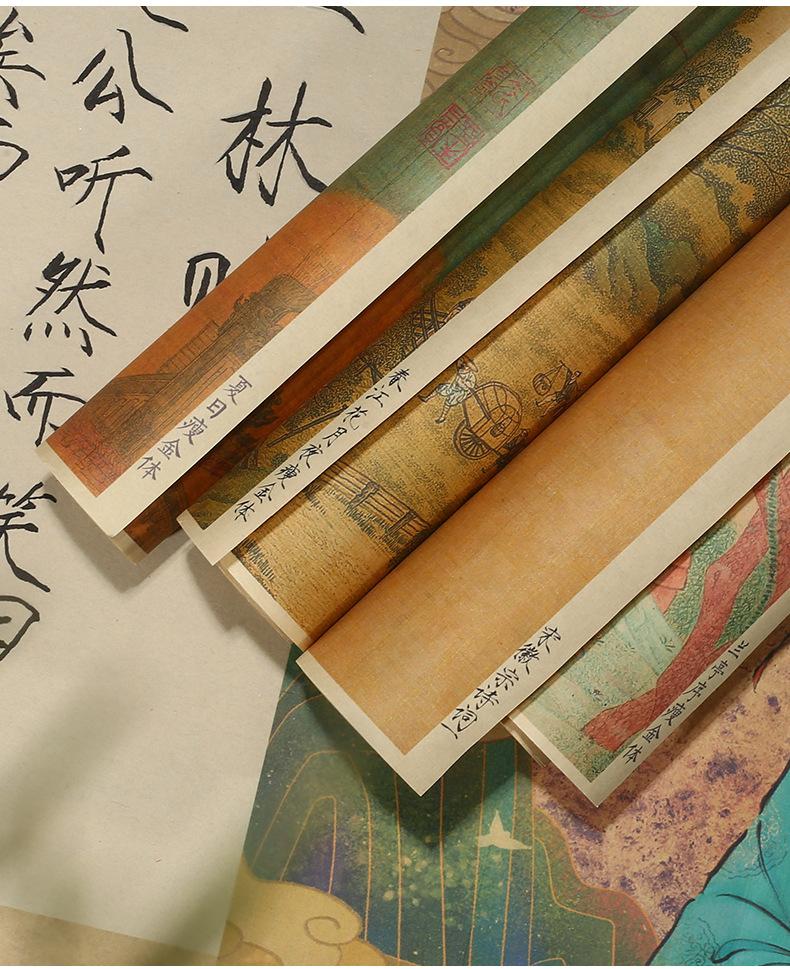 林
公听然而笑曰
矣
夏日瘦金体
春江花月夜瘦金体
宋徽宗诗词一
兰亭序瘦金体